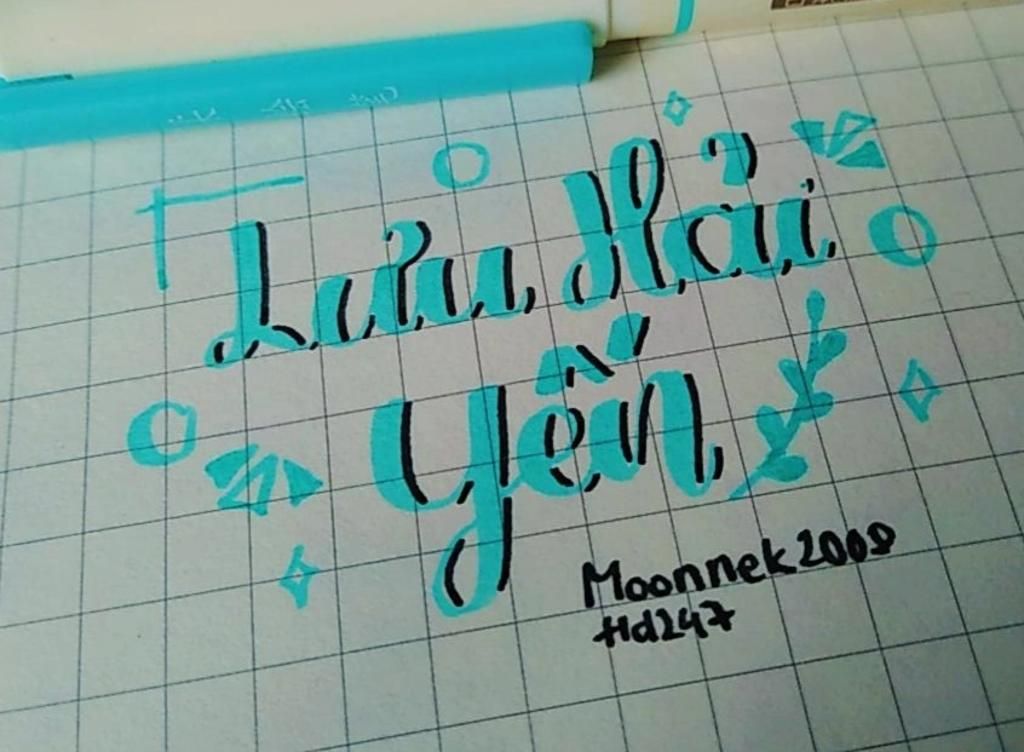 Lưu Hải
Yến
Moonnek2008
Hd247